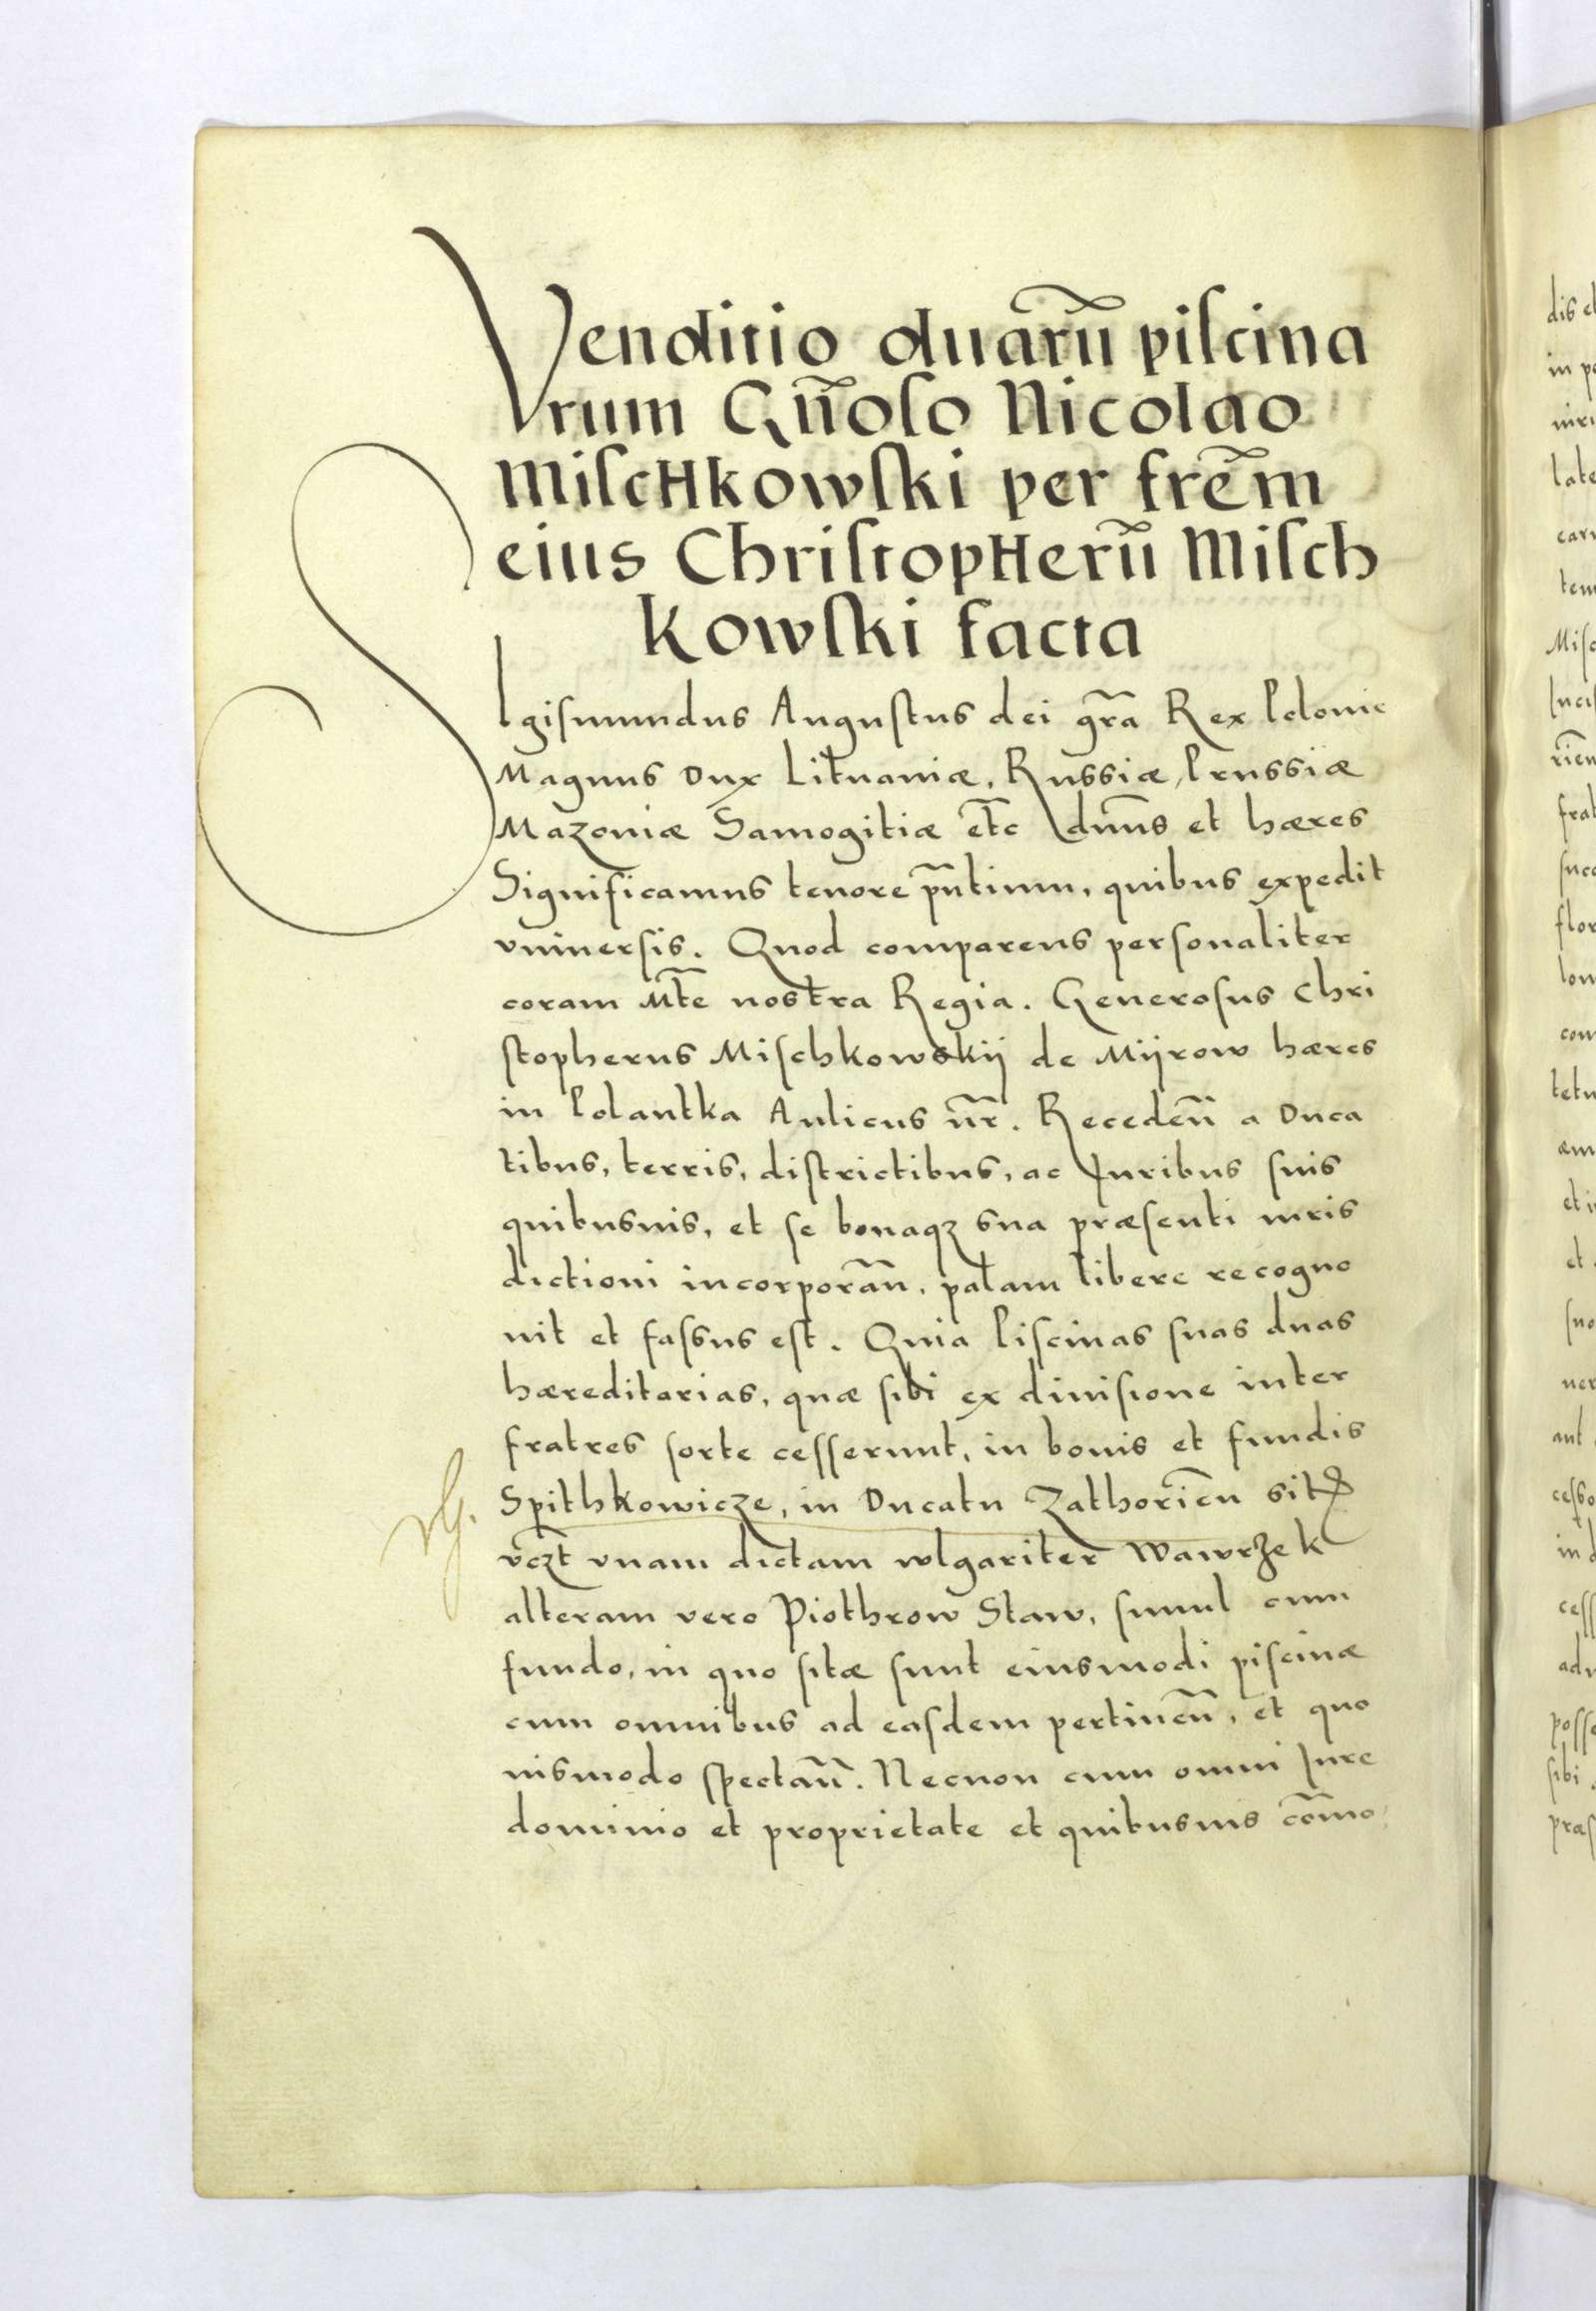 Venditio duarū piscina
rum Gn̄oso Nicolao
Mischkowski per frēm
eius Christopherū Misch
kowski facta
SIgismundus Augustus dei gr̄a Rex Polonie
Magnus Dux Lituaniæ, Russiæ, Prussiæ
Mazoniæ Samogitiæ etc̄ dn̄us et hæres
Significamus tenore pn̄tium, quibus expedit
vniuersis. Quod comparens personaliter
coram Mt̄e nostra Regia. Generosus Chri
stopherus Mischkowskij de Mijrow hæres
in Polantka Aulicus nr̄. Receden̄ a Duca
tibus, terris, districtibus, ac Iuribus suis
quibusuis, et se bonaqꝫ sua præsenti iuris
dictioni incorporan̄, palam libere recogno
uit et fassus est. Quia Piscinas suas duas
hæreditarias, quæ sibi ex diuisione inter
fratres sorte cesserunt, in bonis et fundis
Spithkowicze, in Ducatu Zathorien̄ sit
vcꝫt vnam dictam wlgariter Wawrzek
alteram vero Piothrow Staw, simul cum
fundo, in quo sitæ sunt eiusmodi piscinæ
cum omnibus ad easdem pertinen̄, et quo
uismodo spectan̄. Necnon cum omni Iure
dominio et proprietate et quibusuis com̄o